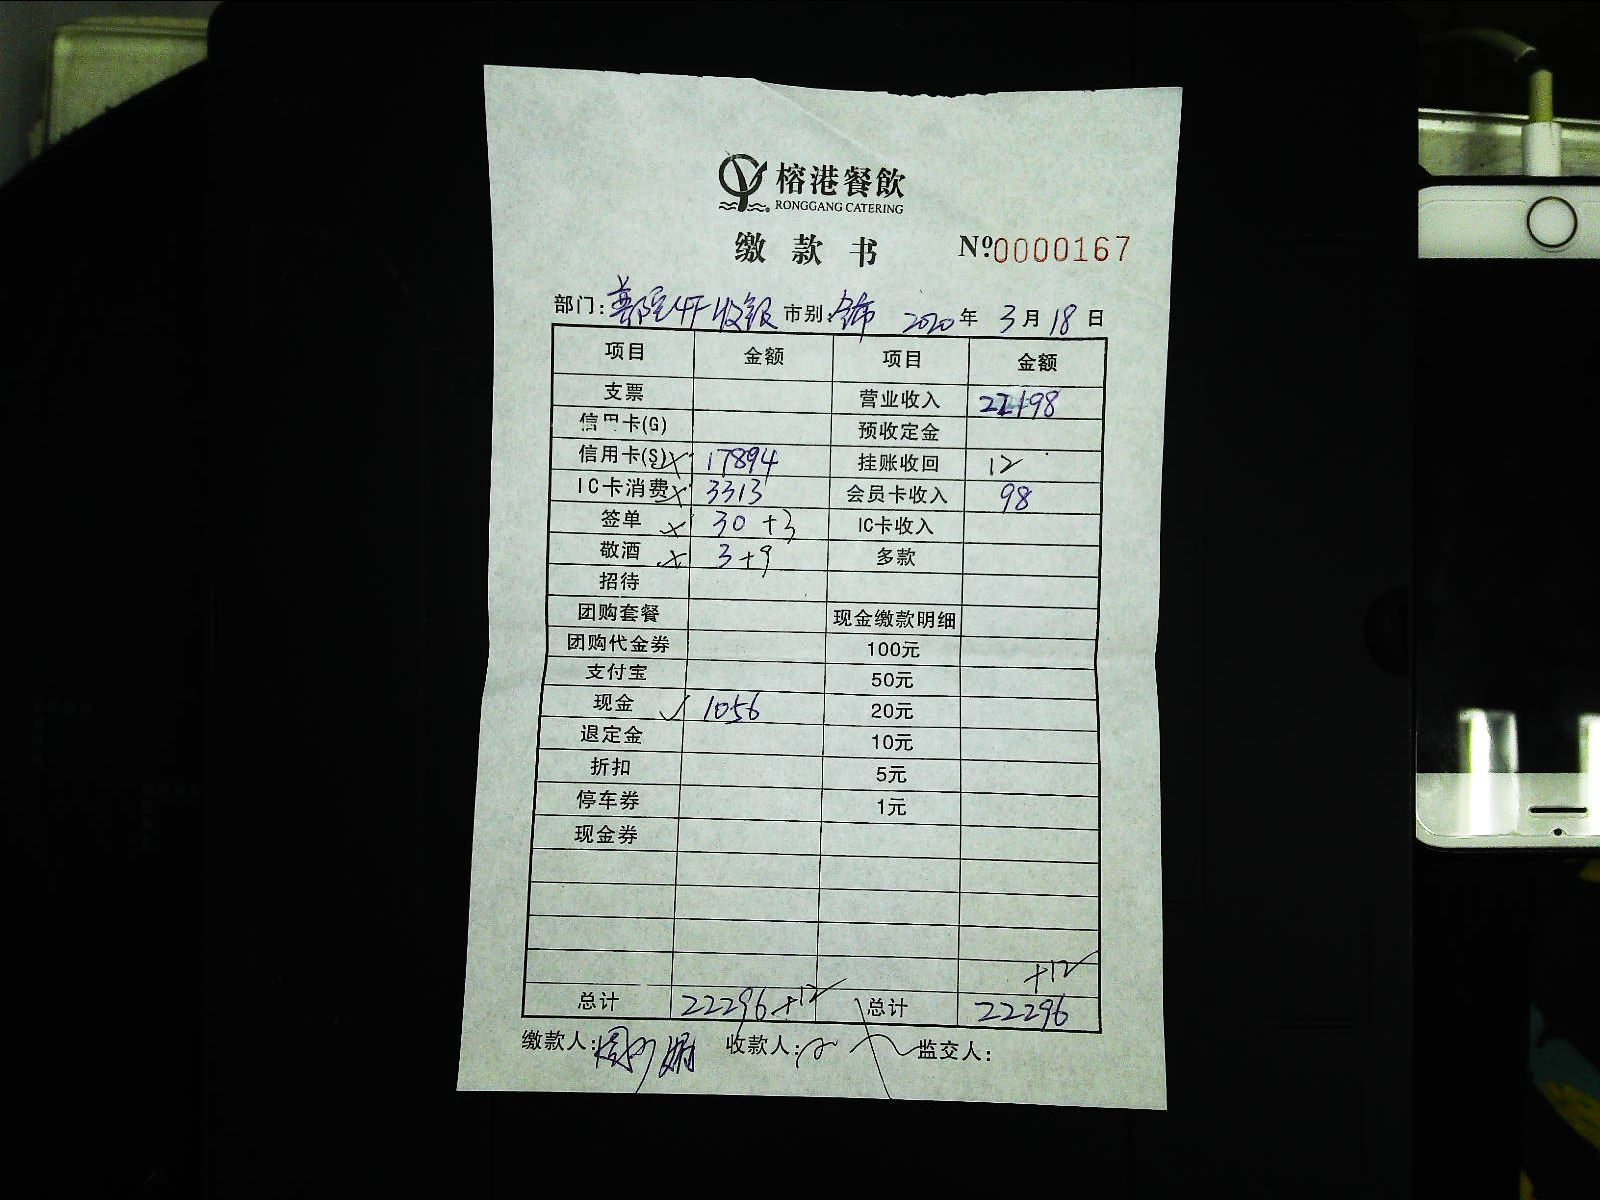 榕港餐飲
RONGGANG CATERING
缴款书 №0000167
部门: 4F收银 市别: 2020年3月18日
项目 金额 项目 金额
支票 营业收入 22198
信用卡(G) 预收定金
信用卡(S)× 17894 挂账收回 12
IC卡消费× 3313 会员卡收入 98
签单 × 30+3 IC卡收入
敬酒 × 3+9 多款
招待
团购套餐 现金缴款明细
团购代金券 100元
支付宝 50元
现金 ✓ 1056 20元
退定金 10元
折扣 5元
停车券 1元
现金券
+12
总计 22296+12 总计 22296
缴款人: 收款人: 监交人: